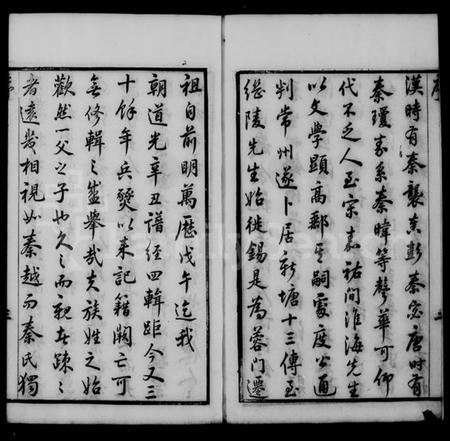 漢時有秦襲秦彭秦宓唐時有
秦瓊秦系秦暐等聲華可仰
代不乏人至宗嘉祐間淮海先生
以文學顯高郵其嗣處度公通
判常州遂卜居新塘十三傳至
繼陵先生始徙錫是為蓉門遷
祖自前明萬歷戊午迄我
朝道光辛丑譜經四輯距今又三
十餘年兵燹以來記籍闕亡可
無修輯之盛舉哉夫族姓之始
歡然一父之子也久之而親者疎疎
者遠幾相視如秦越而秦氏獨